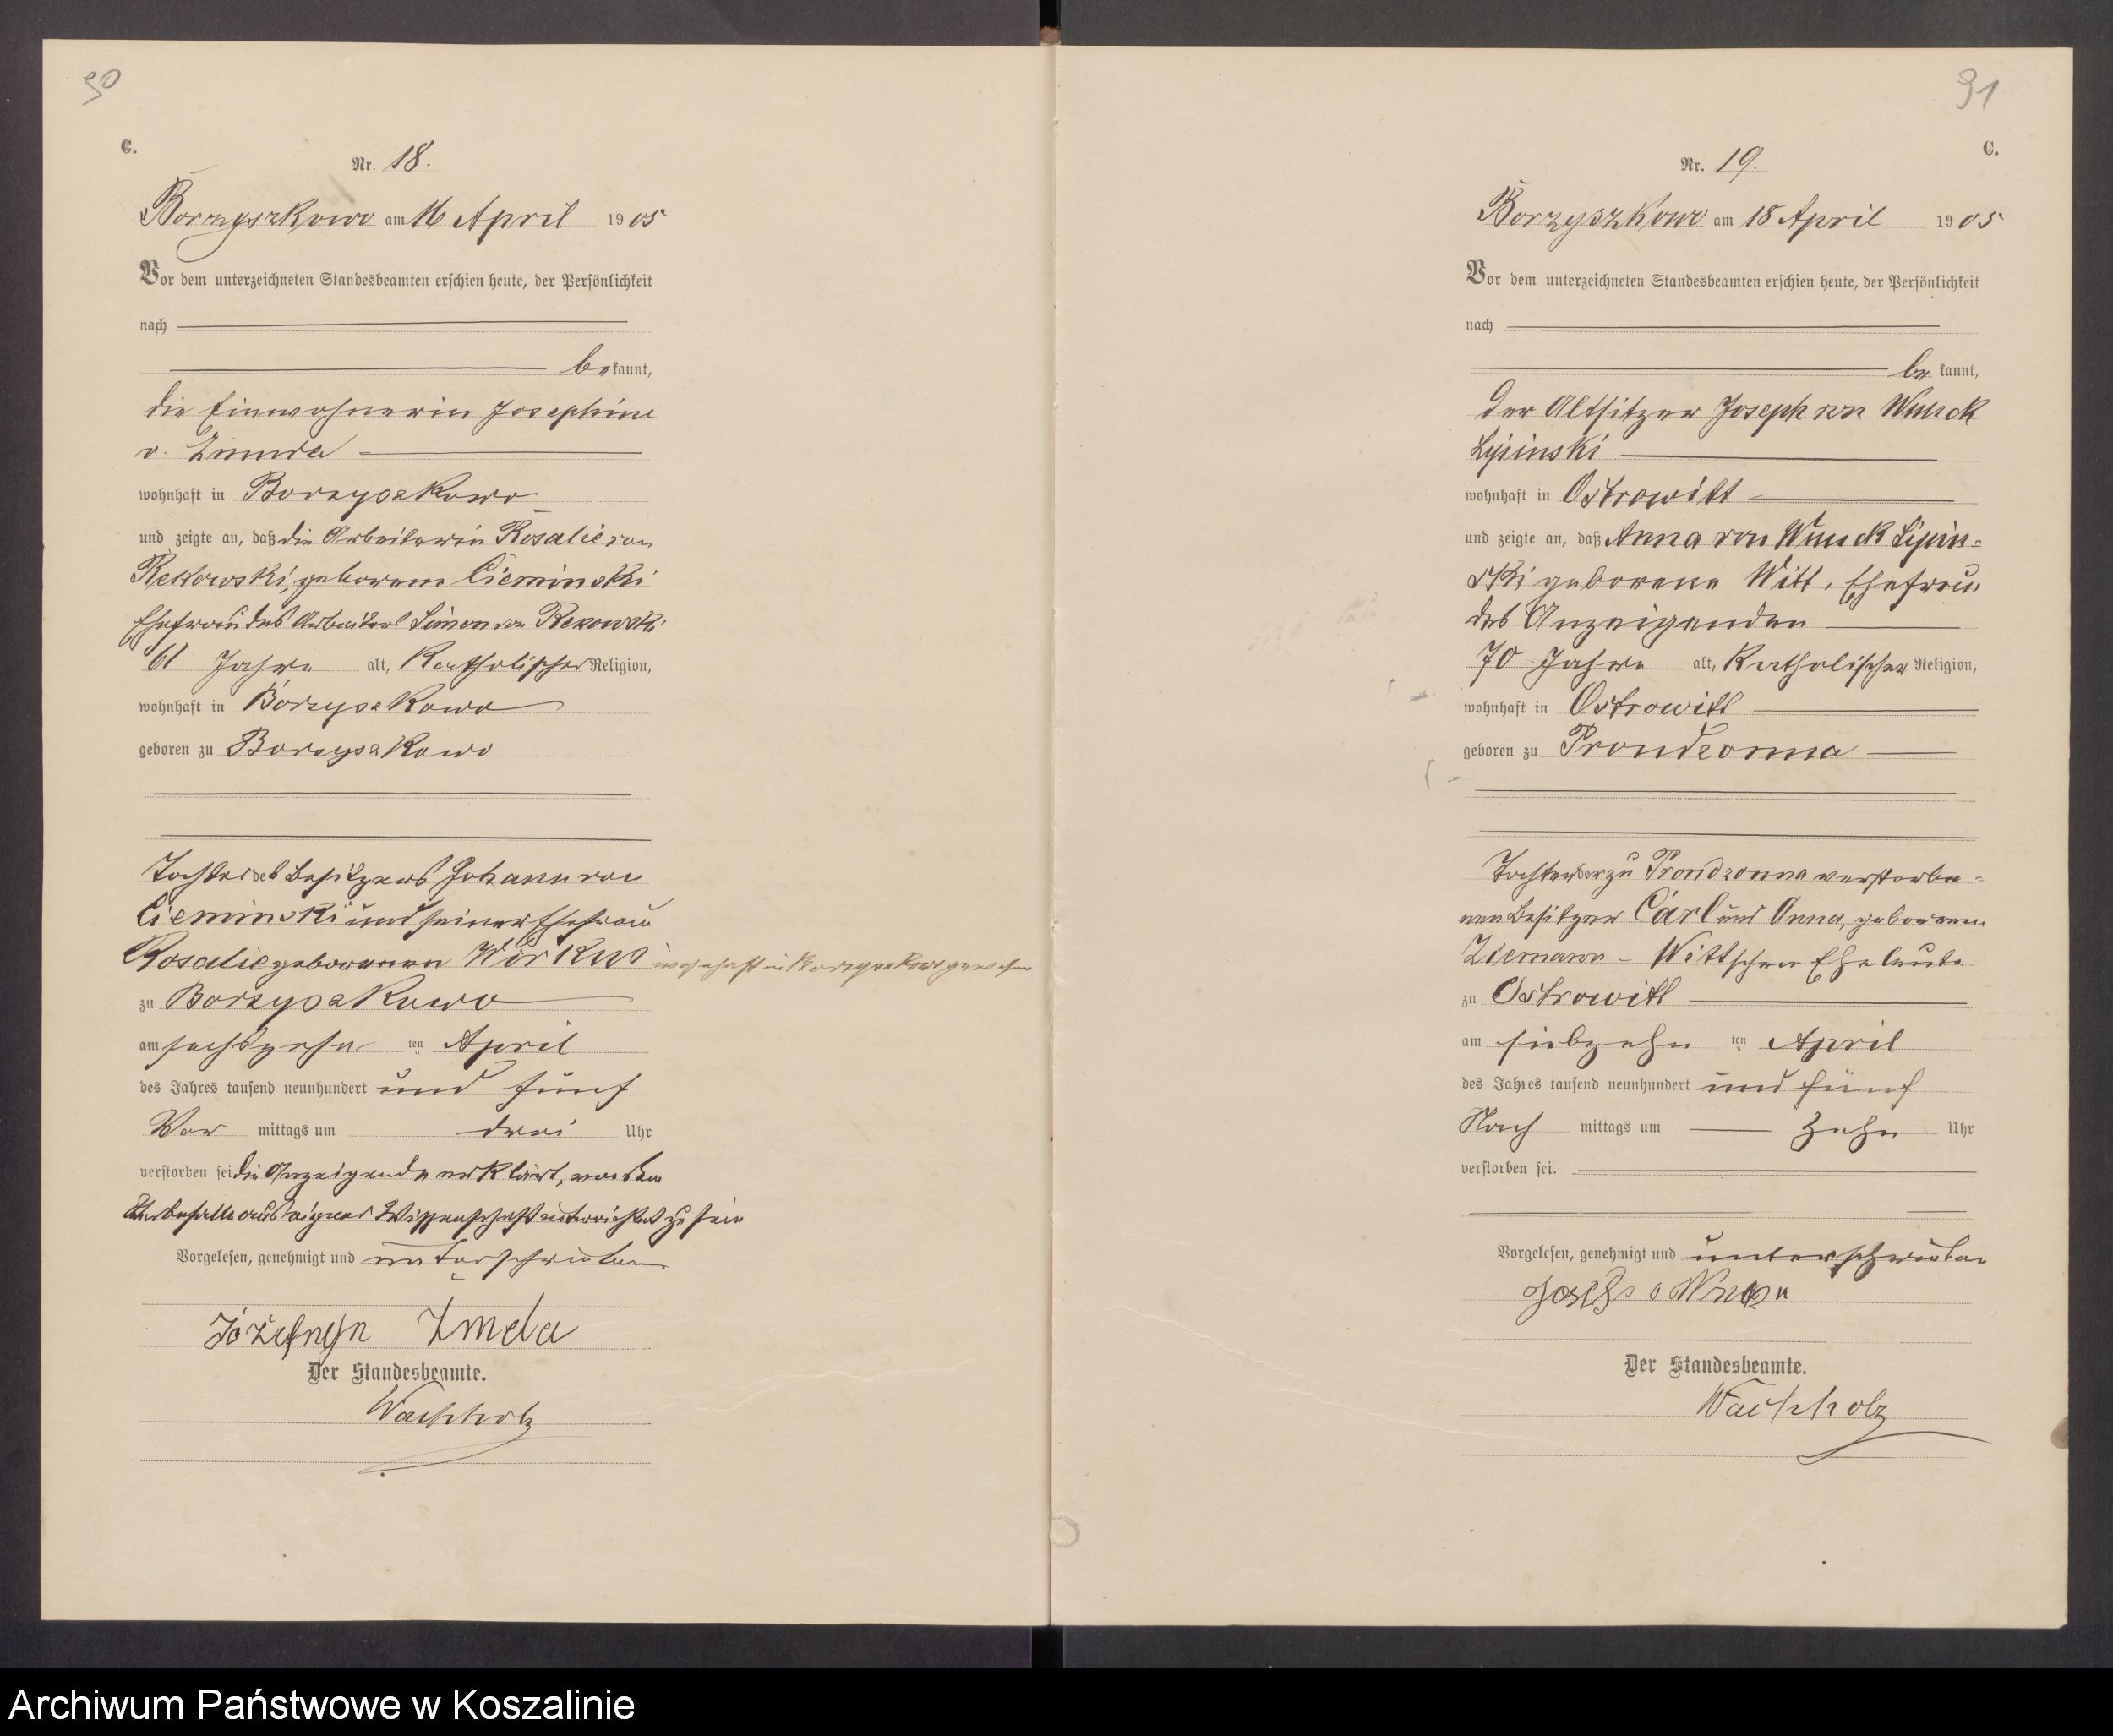 90
C.
Nr. 18.
Borzyszkowo am 16 April 1905
Vor dem unterzeichneten Standesbeamten erschien heute, der Persönlichkeit
nach
bekannt,
die Einwohnerin Josephine
v. Zmuda
wohnhaft in Borzyszkowo
und zeigte an, daß die Arbeiterin Rosalie von
Rekowski, geborene Cieminski
Ehefrau des Arbeiters Simon von Rekowski
61 Jahre alt, Katholischer Religion,
wohnhaft in Borzyszkowo
geboren zu Borzyszkowo
Tochter des Besitzers Johann von
Cieminski und seiner Ehefrau
Rosalie geborenen Wirkus wohnhaft in Borzyszkowo gewesen
zu Borzyszkowo
am sechszehn ten April
des Jahres tausend neunhundert und fünf
Vor mittags um drei Uhr
verstorben sei die Anzeigende erklärt, von dem
Sterbefalle aus eigener Wissenschaft unterrichtet zu sein
Vorgelesen, genehmigt und unterschrieben
Zmda
Der Standesbeamte.
Wachholz
91
C.
Nr. 19.
Borzyszkowo am 18 April 1905
Vor dem unterzeichneten Standesbeamten erschien heute, der Persönlichkeit
nach
be kannt,
der Altsitzer Joseph von Wnuck
Lipinski
wohnhaft in Ostrowitt
und zeigte an, daß Anna von Wnuck Lipin=
ski geborene Witt, Ehefrau
des Anzeigenden
70 Jahre alt, Katholischer Religion,
wohnhaft in Ostrowitt
geboren zu Prondzonna
Tochter der zu Prondzonna verstorbe=
nen Besitzer Carl und Anna, geborenen
Ziemann - Wittschen Eheleute
zu Ostrowitt
am siebzehn ten April
des Jahres tausend neunhundert und fünf
Nach mittags um zehn Uhr
verstorben sei.
Vorgelesen, genehmigt und unterschrieben
Der Standesbeamte.
Wachholz
Archiwum Państwowe w Koszalinie